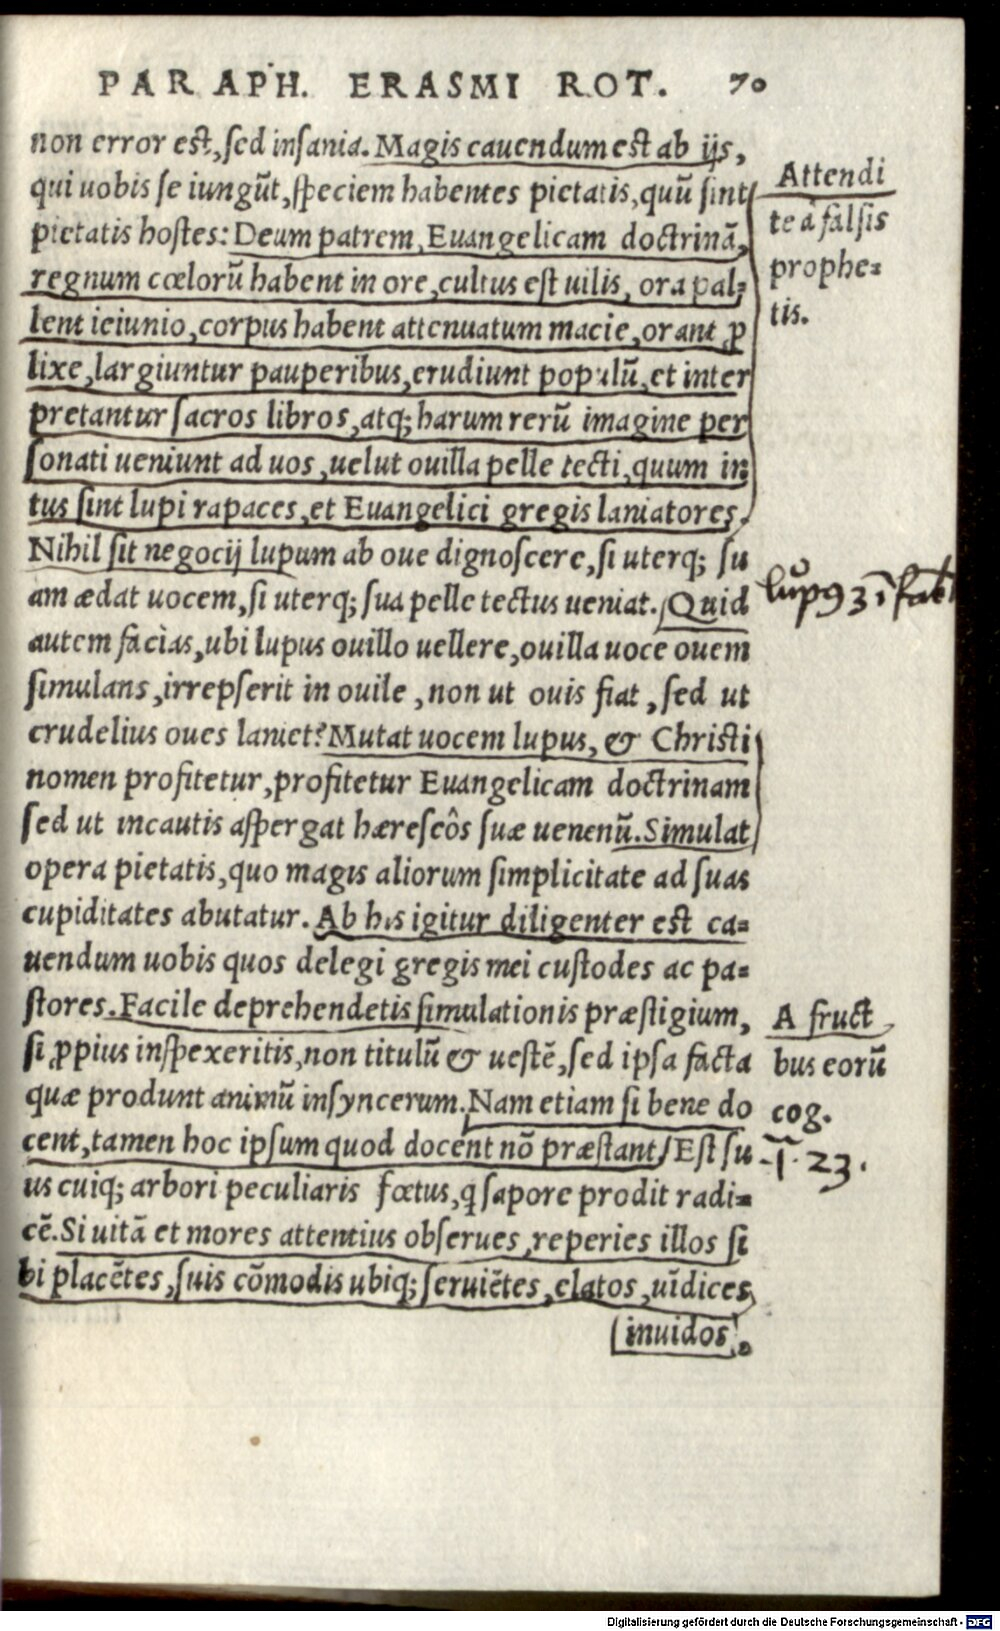 PARAPH. ERASMI ROT. 70
non error est, sed insania. Magis cauendum est ab ijs,
qui uobis se iungūt, speciem habentes pietatis, quū sint
pietatis hostes: Deum patrem, Euangelicam doctrinā,
regnum cœlorū habent in ore, cultus est uilis, ora pal-
lent ieiunio, corpus habent attenuatum macie, orant ꝓ
lixe, largiuntur pauperibus, erudiunt populū, et inter
pretantur sacros libros, atq; harum rerū imagine per
sonati ueniunt ad uos, uelut ouilla pelle tecti, quum in-
tus sint lupi rapaces, et Euangelici gregis laniatores.
Nihil sit negocij lupum ab oue dignoscere, si uterq; su
am ædat uocem, si uterq; sua pelle tectus ueniat. Quid
autem facias, ubi lupus ouillo uellere, ouilla uoce ouem
simulans, irrepserit in ouile, non ut ouis fiat, sed ut
crudelius oues laniet? Mutat uocem lupus, & Christi
nomen profitetur, profitetur Euangelicam doctrinam
sed ut incautis aspergat hæreseôs suæ uenenū. Simulat
opera pietatis, quo magis aliorum simplicitate ad suas
cupiditates abutatur. Ab his igitur diligenter est ca-
uendum uobis quos delegi gregis mei custodes ac pa-
stores. Facile deprehendetis simulationis præstigium,
si ꝓpius inspexeritis, non titulū & uestē, sed ipsa facta
quæ produnt animū insyncerum. Nam etiam si bene do
cent, tamen hoc ipsum quod docent nō præstant/ Est su
us cuiq; arbori peculiaris fœtus, q̃ sapore prodit radi-
cē. Si uitā et mores attentius obserues, reperies illos si
bi placētes, suis cōmodis ubiq; seruiētes, elatos, uīdices
inuidos,
Attendi
te à falsis
prophe-
tis.
A fruct
bus eorū
cog.
23.